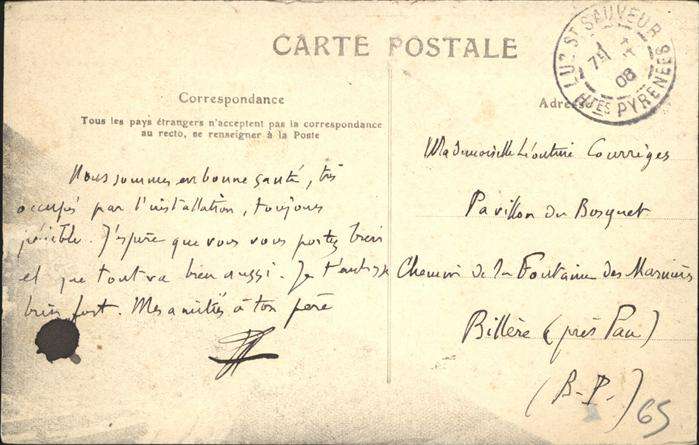 CARTE POSTALE
LUZ-ST-SAUVEUR
HTES PYRENEES
08
Correspondance
Tous les pays étrangers n'acceptent pas la correspondance
au recto, se renseigner à la Poste
Nous sommes en bonne santé, très
occupés par l'installation, toujours
pénible. J'espère que vous vous portez bien
et que tout va bien aussi. Je
bien fort. Mes amitiés à ton père
Adresse
Mademoiselle Courrèges
Pavillon du Bosquet
Chemin de la Fontaine des Marniers
Billère (près Pau)
(B-P.)
65